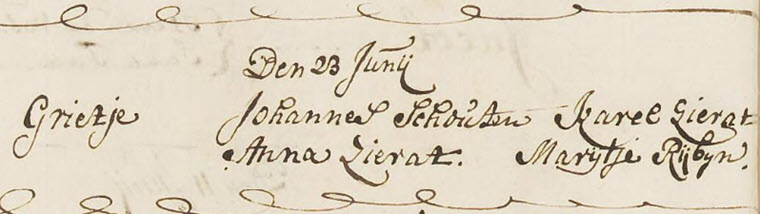 Den 23 Junij
Grietje Johannes Schouten Karel Zierat
Anna Zierat. Marijtje Rijbyn.